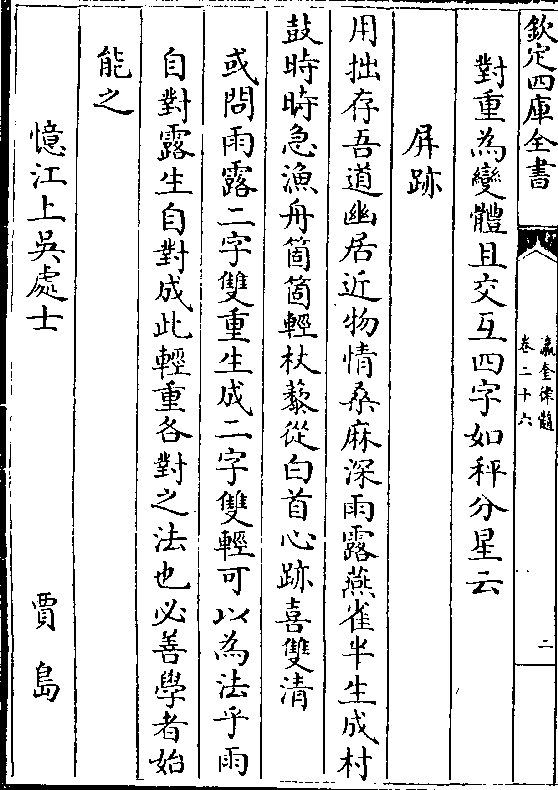 欽定四庫全書
瀛奎律髓
卷二十六
二
對重為變體且交互四字如秤分星云
屏跡
用拙存吾道幽居近物情桑麻深雨露燕雀半生成村
鼓時時急漁舟箇箇輕杖藜從白首心跡喜雙清
或問雨露二字雙重生成二字雙輕可以為法乎雨
自對露生自對成此輕重各對之法也必善學者始
能之
憶江上吳處士 賈島